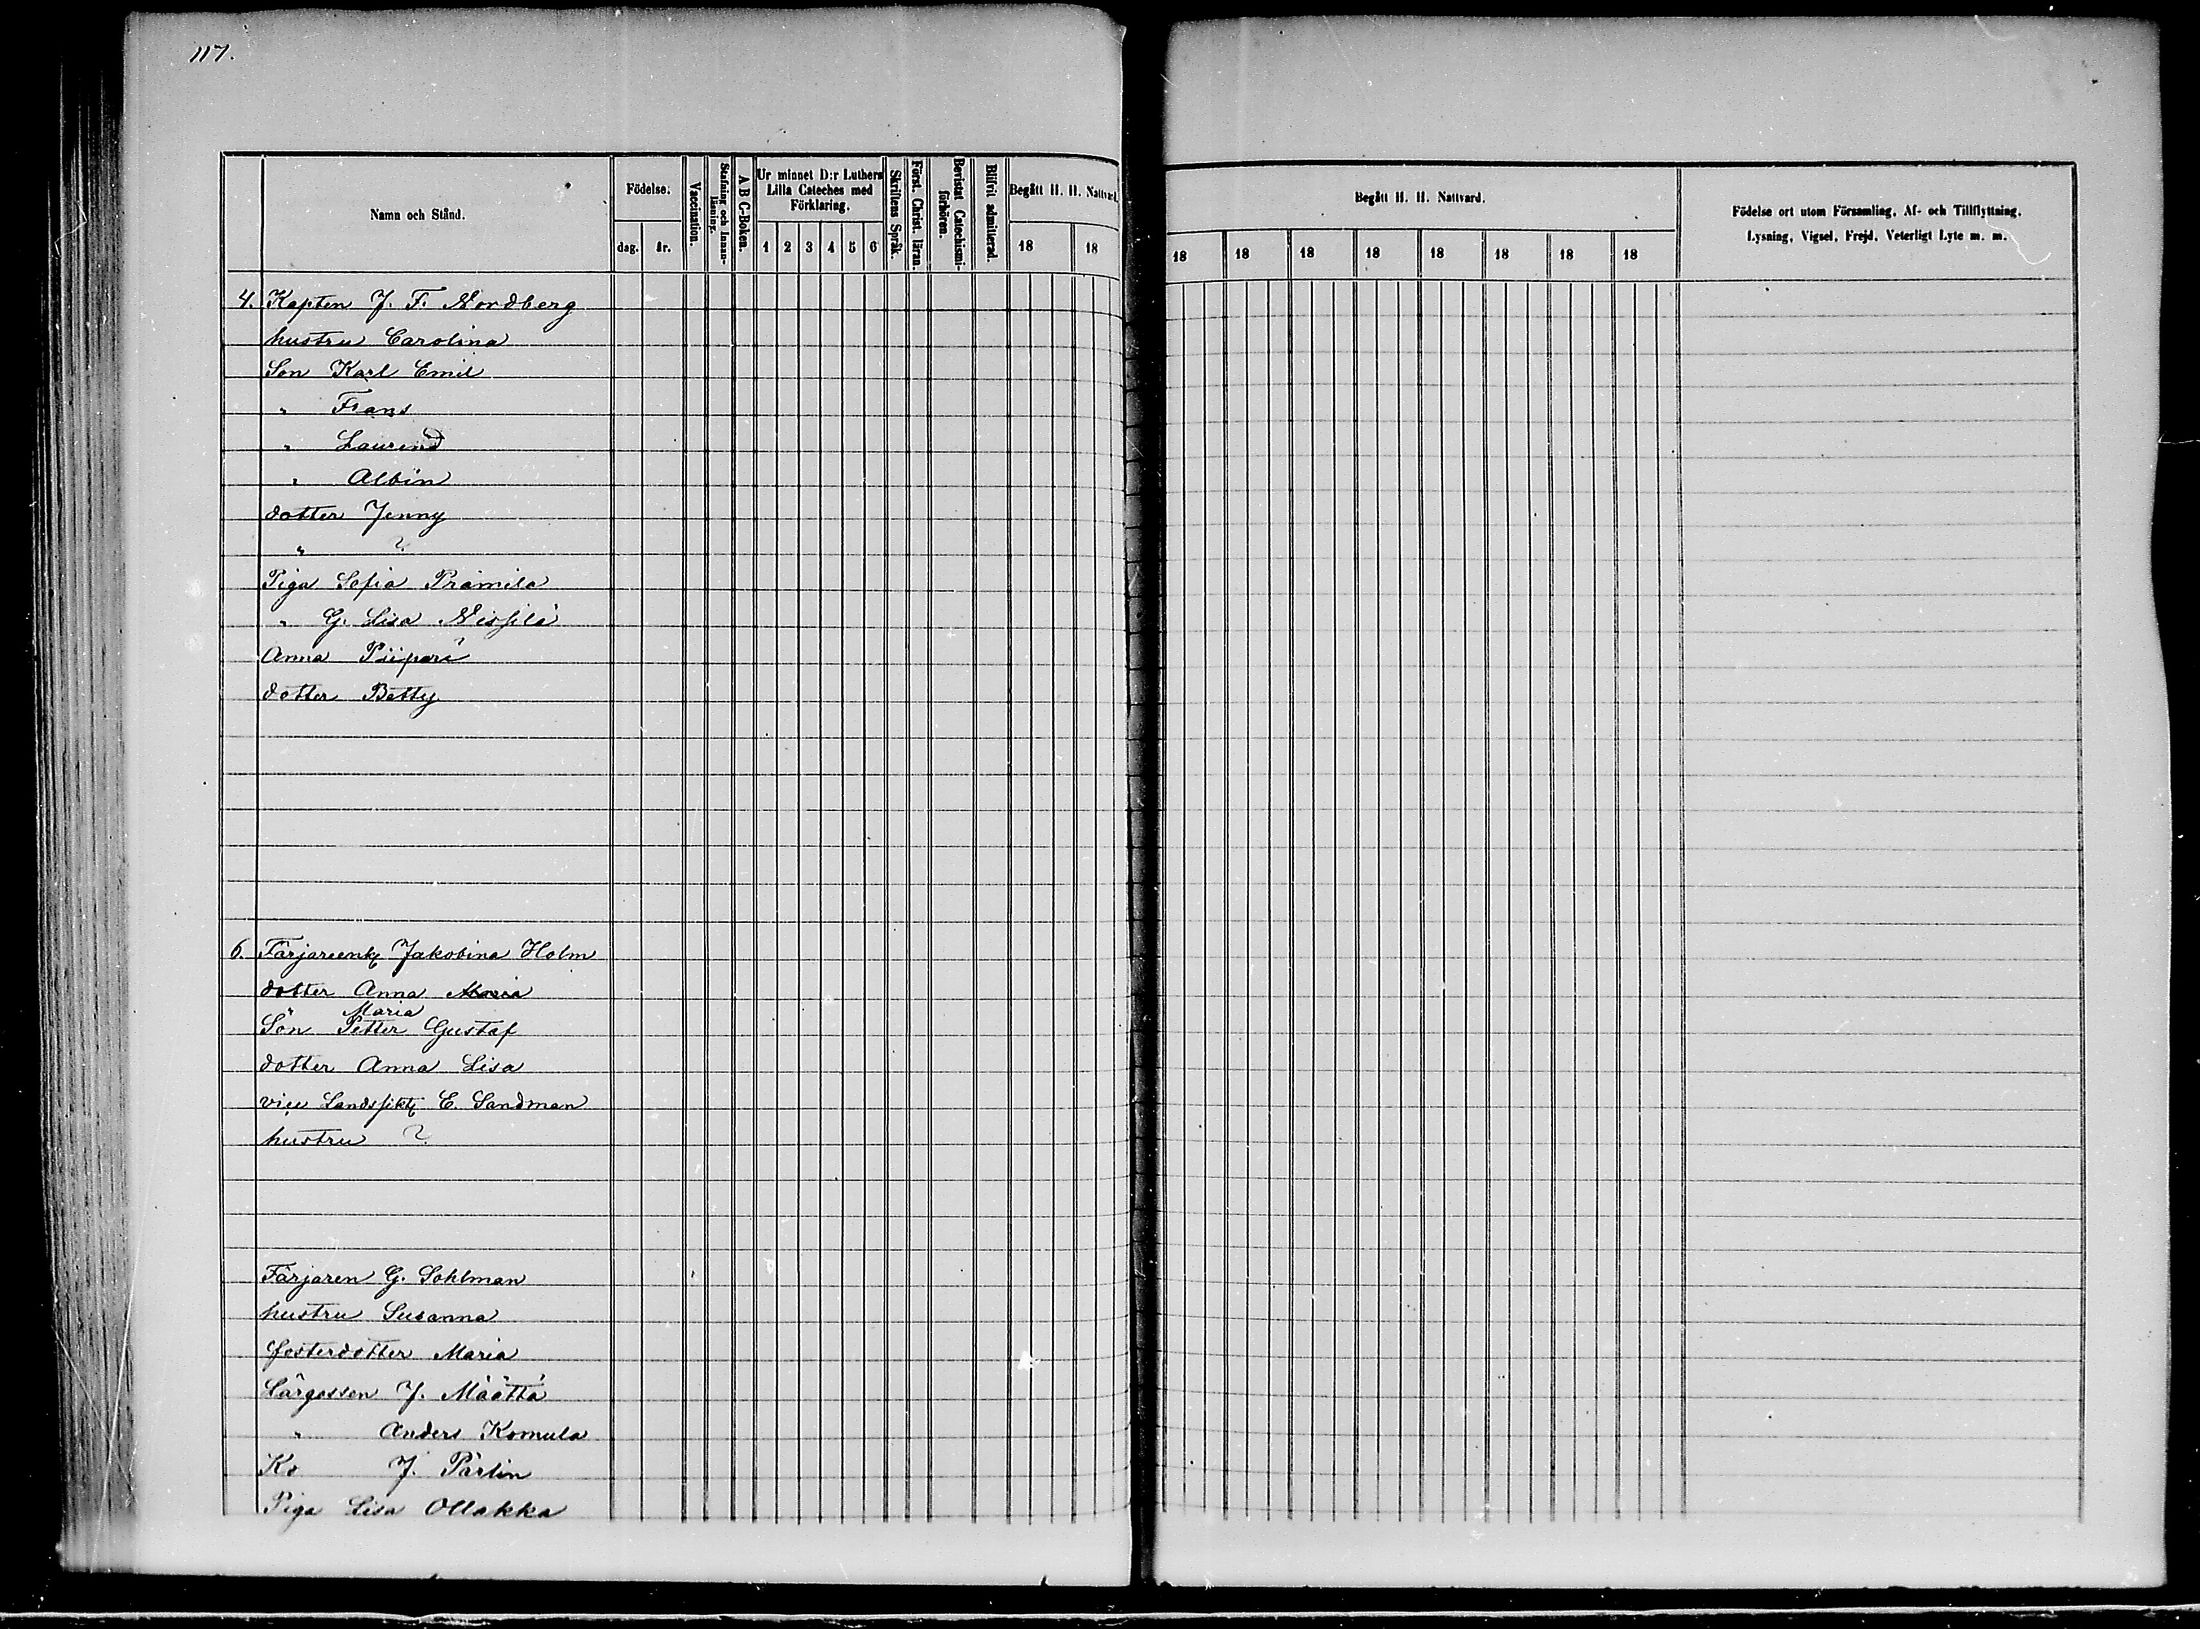 117.
Namn och Stånd.
Födelse.
dag.
år.
Vaccination.
Stafning och Innan-
läsning.
A B C-Boken.
Ur minnet D:r Luthers
Lilla Cateches med
Förklaring.
1 2 3 4 5 6
Skriftens Språk.
Först. Christ. läran.
Bevistat Catechismi-
förhören.
Blifvit admitterad.
Begått H. H. Nattvard.
18 18
Begått H. H. Nattvard.
18 18 18 18 18 18 18 18
Födelse ort utom Församling, Af- och Tillflyttning,
Lysning, Vigsel, Frejd, Veterligt Lyte m. m.
4. Kapten J. F. Nordberg
hustru Carolina
Son Karl Emil
" Frans
" Laurend
" Albin
dotter Jenny
" ?
Piga Sofia Prämilä
" G. Lisa Nissilä
Anna Piipari
dotter Betty
6. Färjareenk Jakobina Holm
dotter Anna Maria
Maria
Sön Petter Gustaf
dotter Anna Lisa
vice Landsfikt E. Sandman
hustru ?
Färjaren G. Sohlman
hustru Susanna
fosterdotter Maria
Lärgossen J. Määttä
" Anders Komula
Ko J. Pärlin
Piga Lisa Ollakka